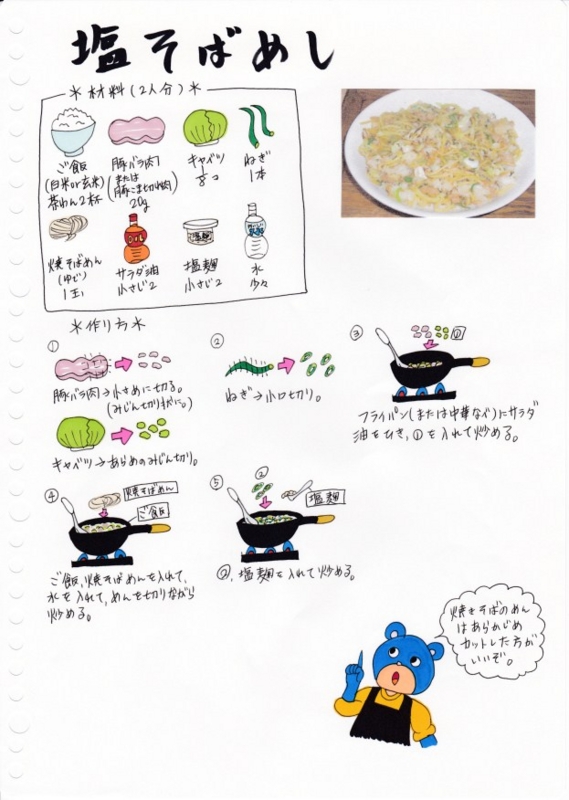 塩そばめし
＊材料(2人分)＊
ご飯
(白米or玄米)
茶わん2杯
豚バラ肉
または
豚こま切れ肉
20g
キャベツ
ねぎ
1本
焼そばめん
(ゆで)
1玉
サラダ油
小さじ2
塩麹
小さじ2
水
少々
＊作り方＊
①
豚バラ肉→小さめに切る。
(みじん切り状に。)
キャベツ→あらめのみじん切り。
②
ねぎ→小口切り。
③
①
フライパン(または中華なべ)にサラダ
油をひき、①を入れて炒める。
④
焼そばめん
ご飯
ご飯、焼そばめんを入れて、
水を入れて、めんを切りながら
炒める。
⑤
②
塩麹
②、塩麹を入れて炒める。
焼きそばのめん
はあらかじめ
カットした方が
いいぞ。